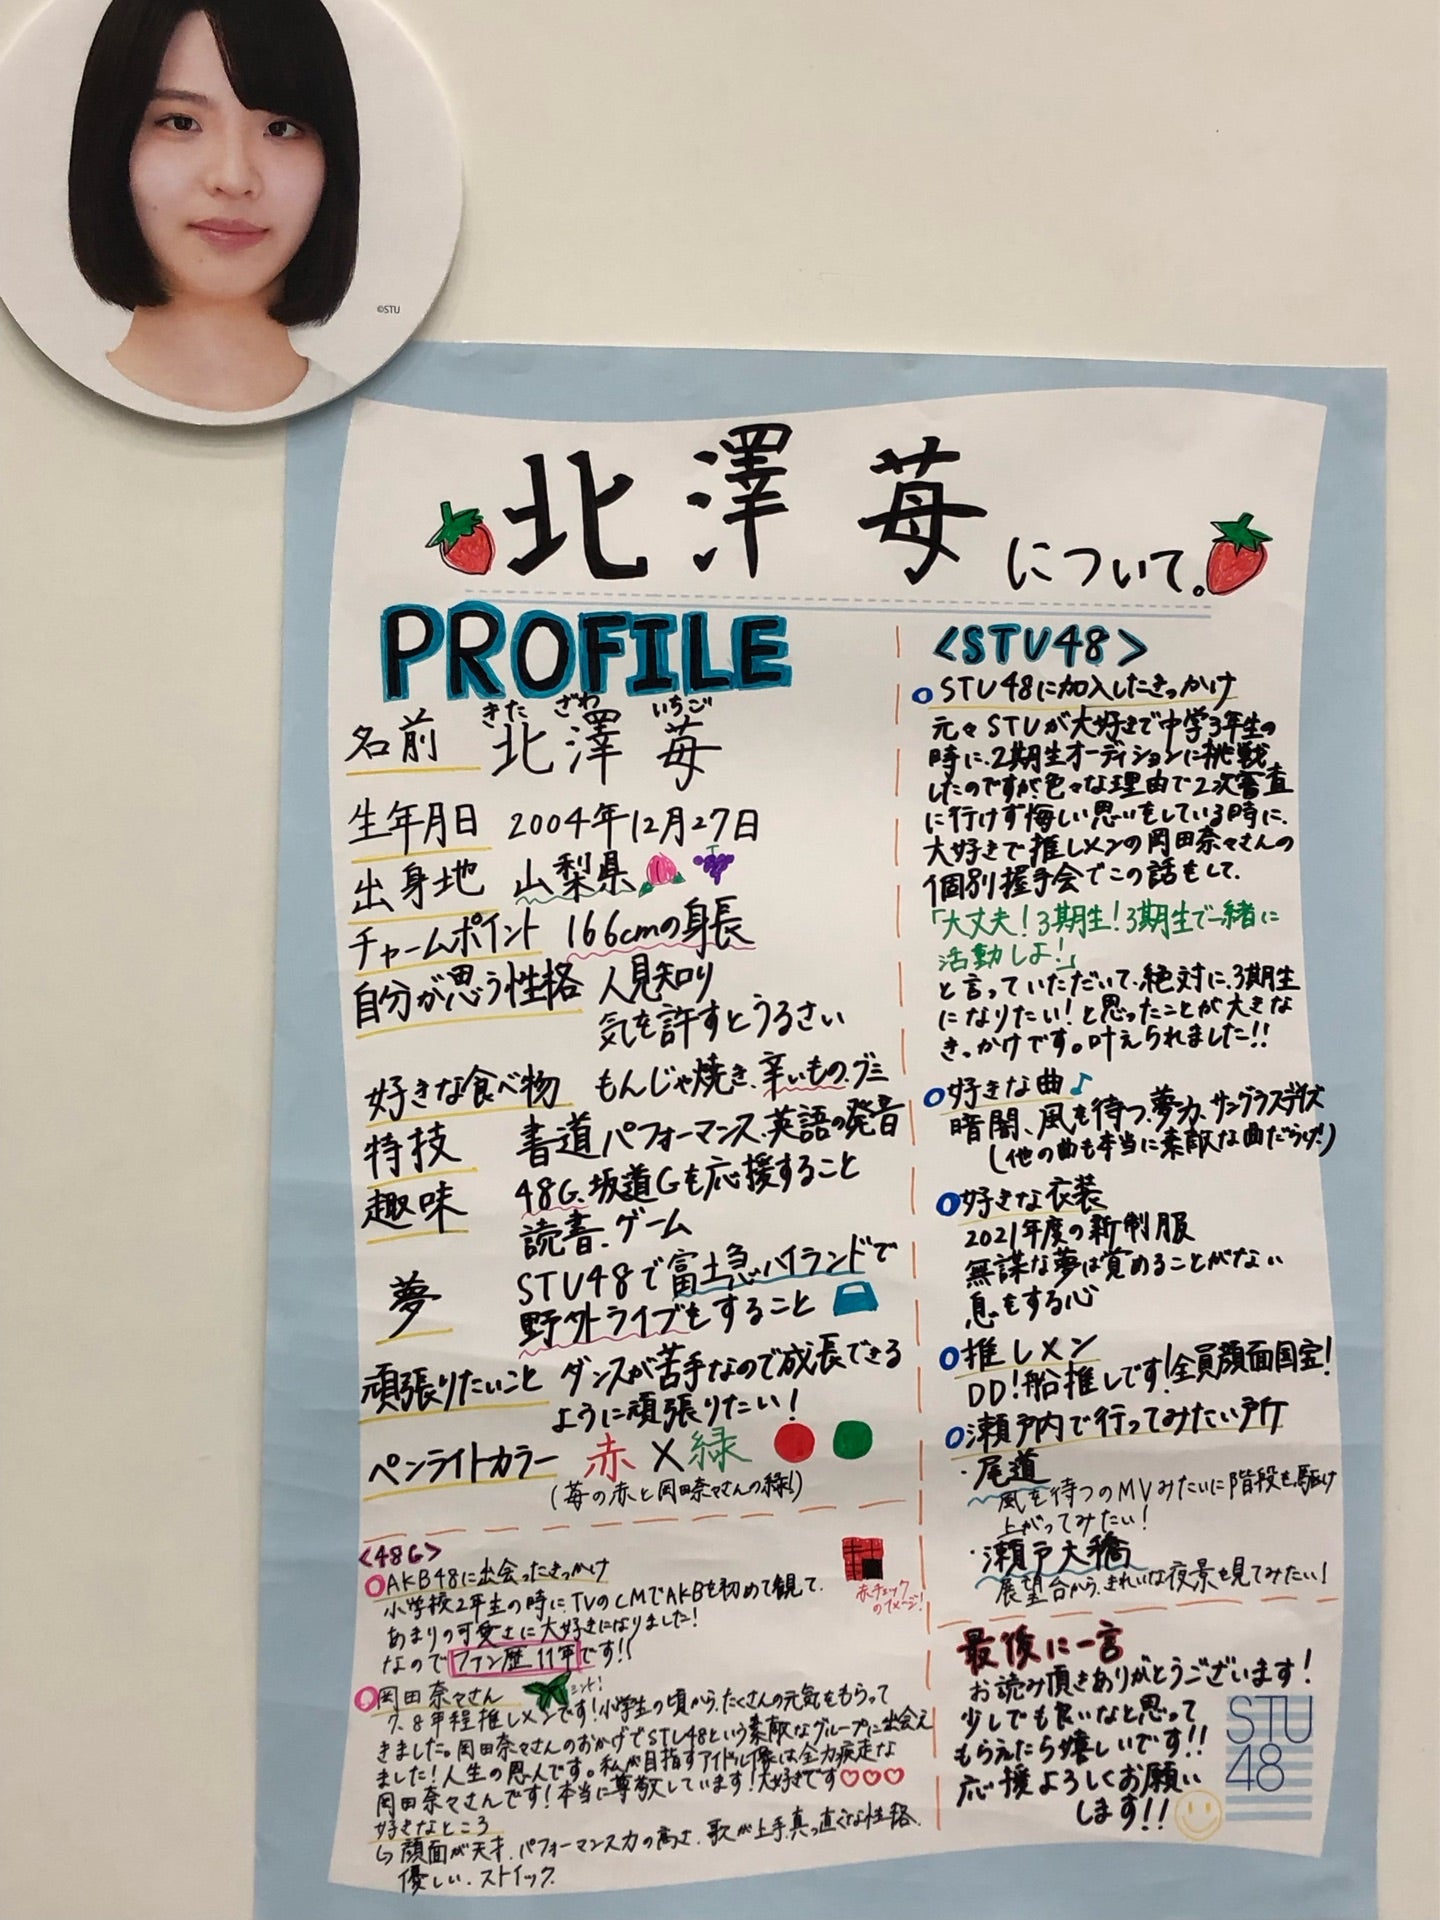 ©STU
北澤 苺 について。
PROFILE
きた ざわ いちご
名前 北澤 苺
生年月日 2004年12月27日
出身地 山梨県
チャームポイント 166cmの身長
自分が思う性格 人見知り
気を許すとうるさい
好きな食べ物 もんじゃ焼き、辛いもの、グミ
特技 書道パフォーマンス、英語の発音
趣味 48G、坂道Gを応援すること
読書、ゲーム
夢 STU48で富士急ハイランドで
野外ライブをすること
頑張りたいこと ダンスが苦手なので成長できる
ように頑張りたい！
ペンライトカラー 赤×緑
(苺の赤と岡田奈々さんの緑！)
<48G>
AKB48に出会ったきっかけ
小学校2年生の時に、TVのCMでAKBを初めて観て、
あまりの可愛さに大好きになりました！
なのでファン歴11年です!!
赤チェック
のイメージ！
岡田奈々さん
ミント！
7、8年程推しメンです！小学生の頃から、たくさんの元気をもらって
きました。岡田奈々さんのおかげでSTU48という素敵なグループに出会え
ました！人生の恩人です。私が目指すアイドル像は全力疾走な
岡田奈々さんです！本当に尊敬しています！大好きです♡♡♡
好きなところ
↳顔面が天才、パフォーマンス力の高さ、歌が上手、真っ直ぐな性格、
優しい、ストイック
<STU48>
STU48に加入したきっかけ
元々STUが大好きで中学3年生の
時に、2期生オーディションに挑戦
したのですが色々な理由で2次審査
に行けず悔しい思いをしている時に、
大好きで推しメンの岡田奈々さんの
個別握手会でこの話をして、
「大丈夫！3期生！3期生で一緒に
活動しよ！」
と言っていただいて、絶対に、3期生
になりたい！と思ったことが大きな
きっかけです。叶えられました!!
好きな曲♪
暗闇、風を待つ、夢力、サングラスデイズ
(他の曲も本当に素敵な曲だらけ！)
好きな衣装
2021年度の新制服
無謀な夢は覚めることがない
息をする心
推しメン
DD！船推しです！全員顔面国宝！
瀬戸内で行ってみたい所
・尾道
風を待つのMVみたいに階段を駆け
上がってみたい！
・瀬戸大橋
展望台から、きれいな夜景を見てみたい！
最後に一言
お読み頂きありがとうございます！
少しでも良いなと思って
もらえたら嬉しいです!!
応援よろしくお願い
します!!
STU
48